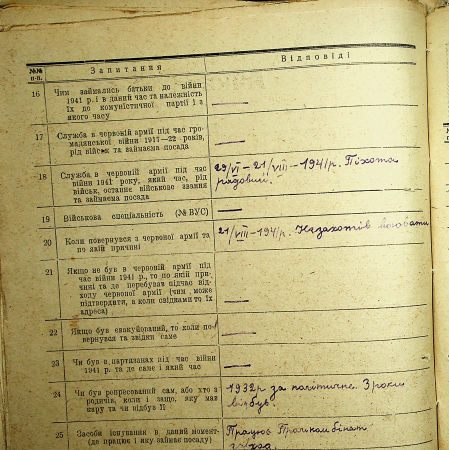 №№ п-п.
Запитання
Відповіді
16 Чим займались батьки до війни
1941 р. і в даний час та належність
їх до комуністичної партії і з
якого часу
—
17 Служба в червоній армії під час гро-
мадянської війни 1917—22 років,
рід військ та займаема посада
—
18 Служба в червоній армії під час
війни 1941 року, який час, рід
військ, останнє військове звання
та займаема посада
29/VI – 21/VIII – 1941 р. Піхота
рядовий.
19 Військова спеціяльність (№ ВУС)
—
20 Коли повернувся з червоної армії та
по якій причині
21/VIII – 1941 р. Незахотів воювати
21 Якщо не був в червоній армії під
час війни 1941 р., то по якій при-
чині та де перебував підчас від-
ходу червоної армії (чим може
підтвердити, а коли свідками то їх
адреса)
—
22 Якщо був евакуйований, то коли по-
вернувся та звідки саме
—
23 Чи був в партизанах під час війни
1941 р. та де саме і який час
—
24 Чи був репресований сам, або хто з
родичів, коли і защо, яку мав
кару та чи відбув її
1932 р за політичне. 3 роки
відбув.
25 Засоби існування в даний момент-
(де працює і яку займає посаду)
Працює
завгосп.